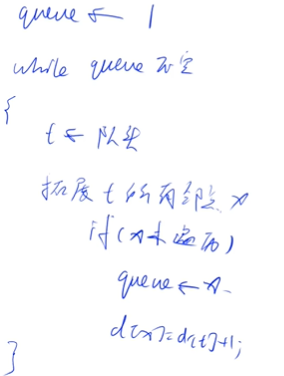 queue ← 1
while queue 不空
{
t ← 队头
拓展 t 的所有邻点 x
if (x 未遍历)
queue ← x
d[x] = d[t] + 1;
}